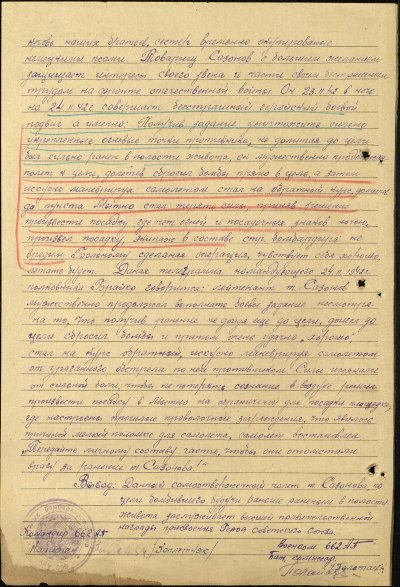 кровь наших братьев, сестер временно оккупированные
немецкими псами. Товарищ Сазонов с большим желанием
защищает интересы своего звена и части своим бесстрашным
трудом на фронте отечественной войны. Он 23.11.42 в ночь
на 24.11.42г совершает бесстрашный геройский боевой
подвиг а именно: Получив задание уничтожить сильно
укрепленные огневые точки противника, не долетая до цели
был сильно ранен в полость живота, он мужественно продолжал
полет к цели, долетев сбросил бомбы прямо в цель, а затем
искусно маневрируя самолетом стал на обратный курс, долетая
до пункта Мотно стал терять силы, принял решение
произвести посадку где нет огней и посадочных знаков ночью,
произвел посадку, экипаж в составе стр. бомбардира не
вредим. Больному сделана операция, чувствует себя хорошо,
летать будет. Даная телеграмма командующего 24.11.42г.
полковника говорится: лейтенант т. Сазонов
мужественно продолжал выполнять боевое задание несмотря
на то, что получив ранение не доходя еще до цели, дошел до
цели сбросил бомбы и притом очень удачно, хорошо
стал на курс обратный, искусно маневрируя самолетом
от ураганного обстрела по нем противником. Силы иссякали
от сильной боли, чтобы не потерять сознание в воздухе решил
произвести посадку в Мотно на ограниченной для посадки площадке,
где настроены прошлые проволочные заграждения, что явилось
причиной мелкой поломке для самолета, самолет восстановлен.
"Передайте личному составу части, чтобы они отомстили
врагу за ранение т. Сазонова!"
Вывод: Данный самоотверженный полет т. Сазонова, по
цели бомбившего будучи раненым в полость
живота заслуживает высшей правительственной
награды присвоения Героя Советского Союза.
Командир 662 АП
Капитан
Военком 662 АП
Бат. комиссар